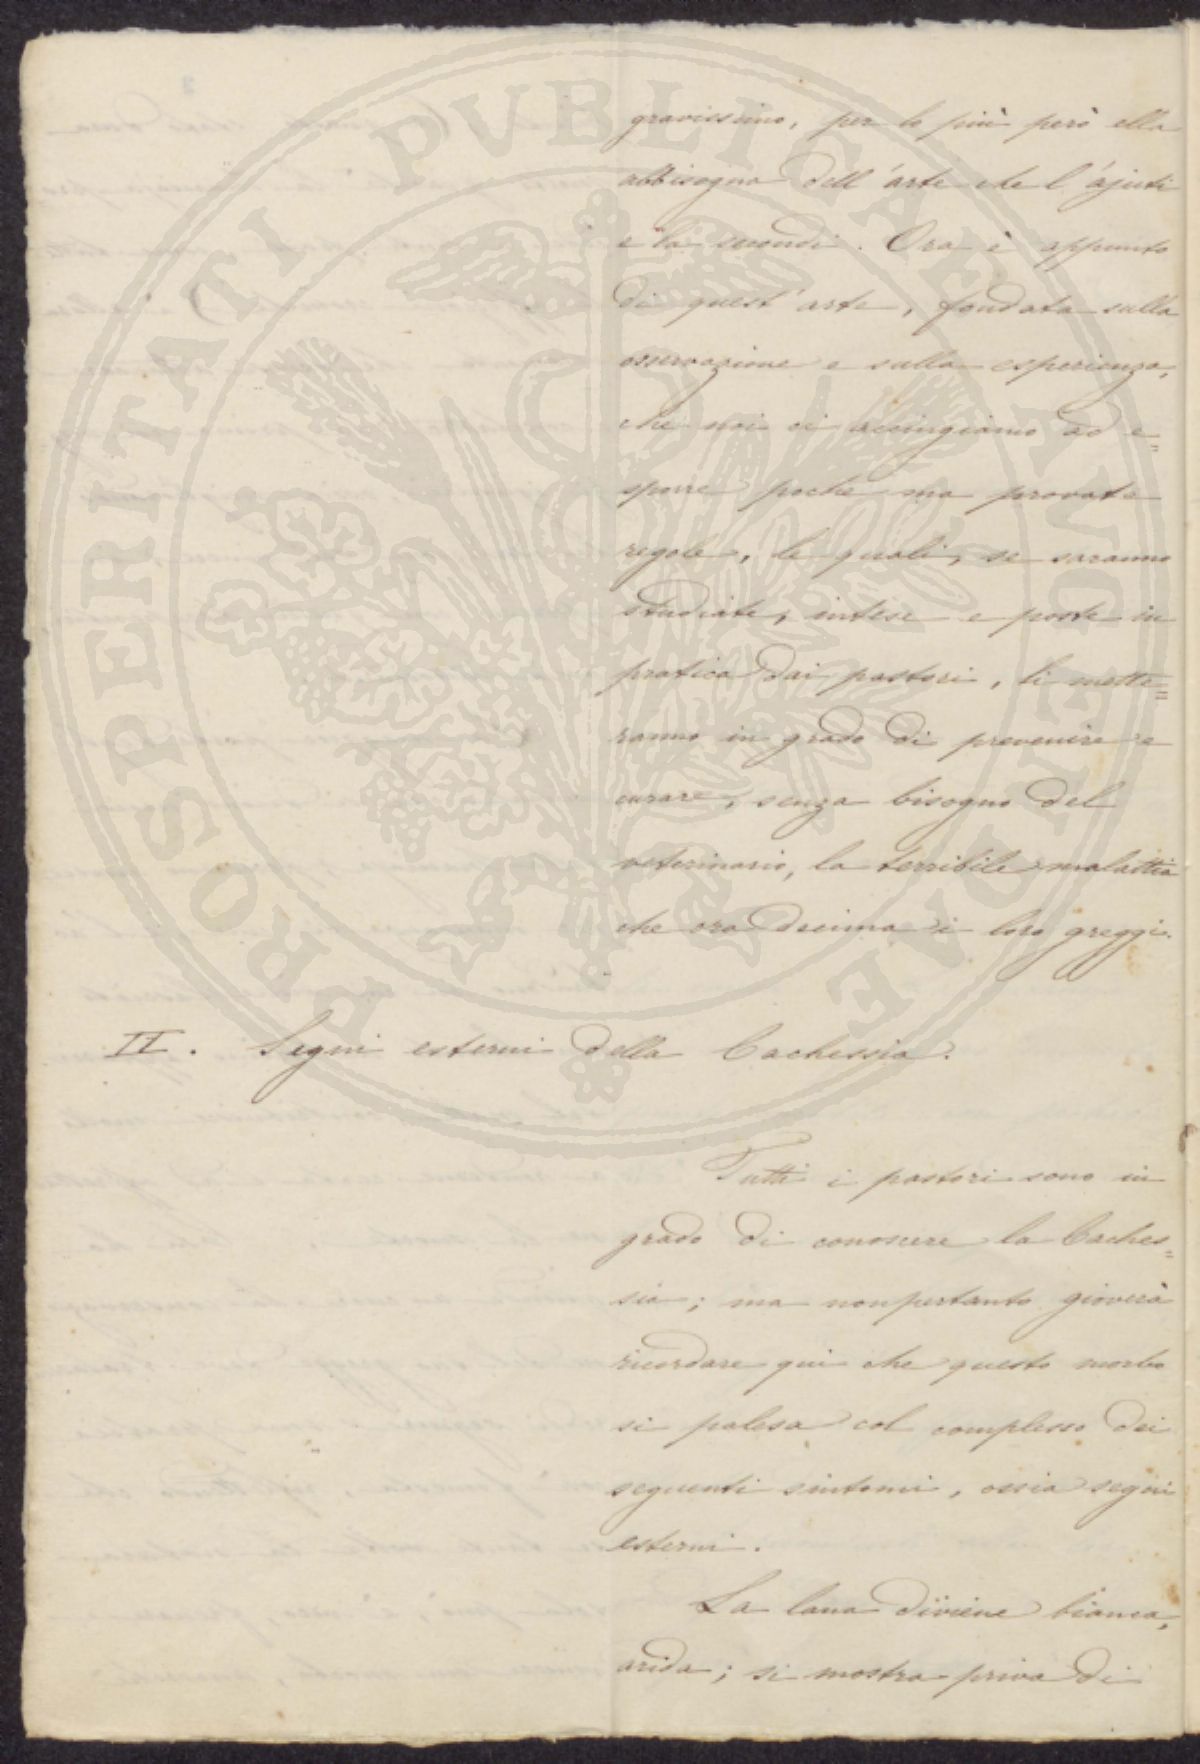 gravissimo, per lo più però ella
abbisogna dell'arte che l'ajuti
e la secondi. Ora è appunto
di quest'arte, fondata sulla
osservazione e sulla esperienza,
che noi ci accingiamo ad e=
sporre poche ma provate
regole, le quali, se saranno
studiate, intese e poste in
pratica dai pastori, li mette=
ranno in grado di prevenire e
curare, senza bisogno del
veterinario, la terribile malattia
che ora decima i loro greggi.
II. Segni esterni della Cachessia.
Tutti i pastori sono in
grado di conoscere la Caches=
sia; ma nonpertanto gioverà
ricordare qui che questo morbo
si palesa col complesso dei
seguenti sintomi, ossia segni
esterni.
La lana diviene bianca,
arida; si mostra priva di
PROSPERITATI PVBLICAE AVGENDAE